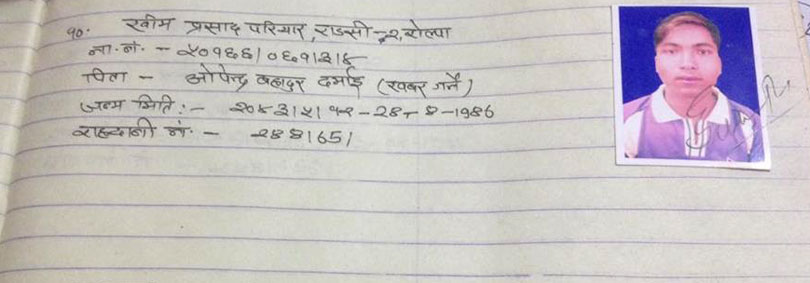 १०. खीम प्रसाद परियार, राङसी -२, रोल्पा
ना. नं. - ५०१६६/०६१/३/४
पिता - ओपेन्द्र बहादुर दर्माइ (खबर गर्ने)
जन्म मिति :- २०४३/५/१२ - 28-8-1986
राहदानी नं. - २४४1651